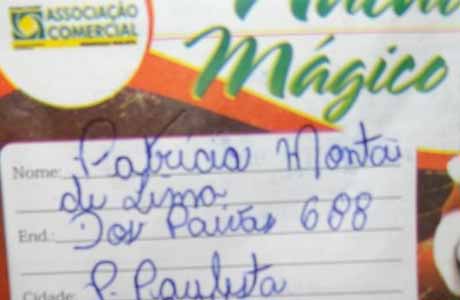 ASSOCIAÇÃO
COMERCIAL
Mágico
Nome: Patrícia Montai
de Lima
End.: Dos Paivas 688
Cidade: P. Paulista